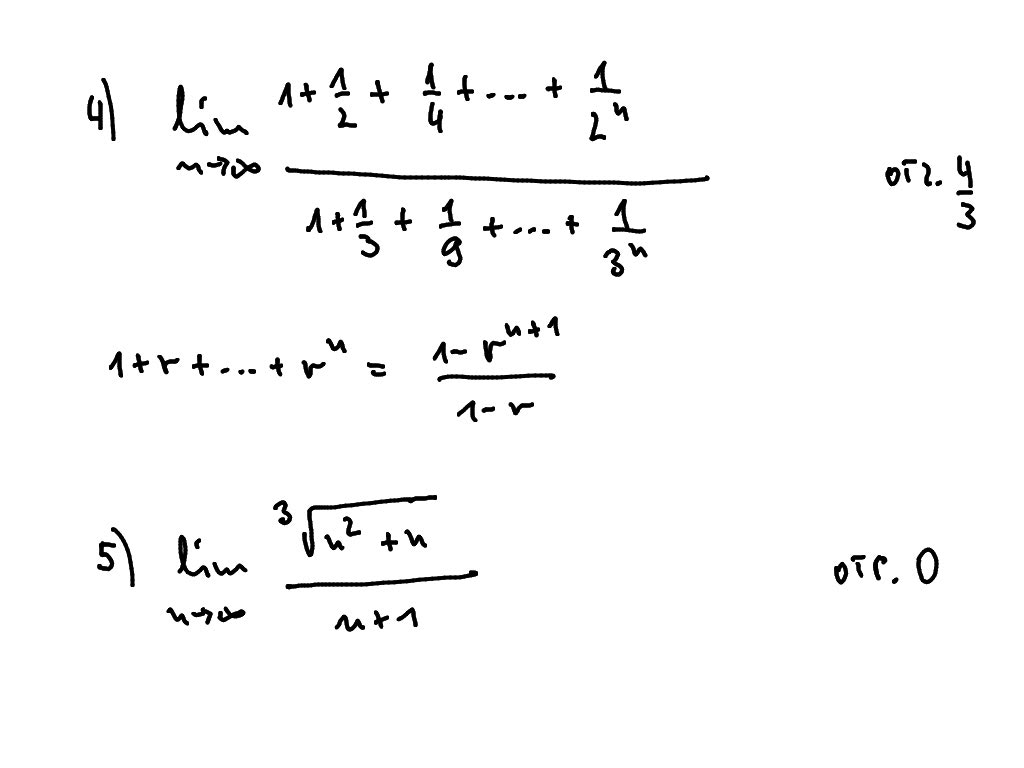 4) lim n→∞ (1 + 1/2 + 1/4 + ... + 1/2^n) / (1 + 1/3 + 1/9 + ... + 1/3^n) отг. 4/3
1 + r + ... + r^n = (1 - r^(n+1)) / (1 - r)
5) lim n→∞ ∛(n² + n) / (n + 1) отг. 0